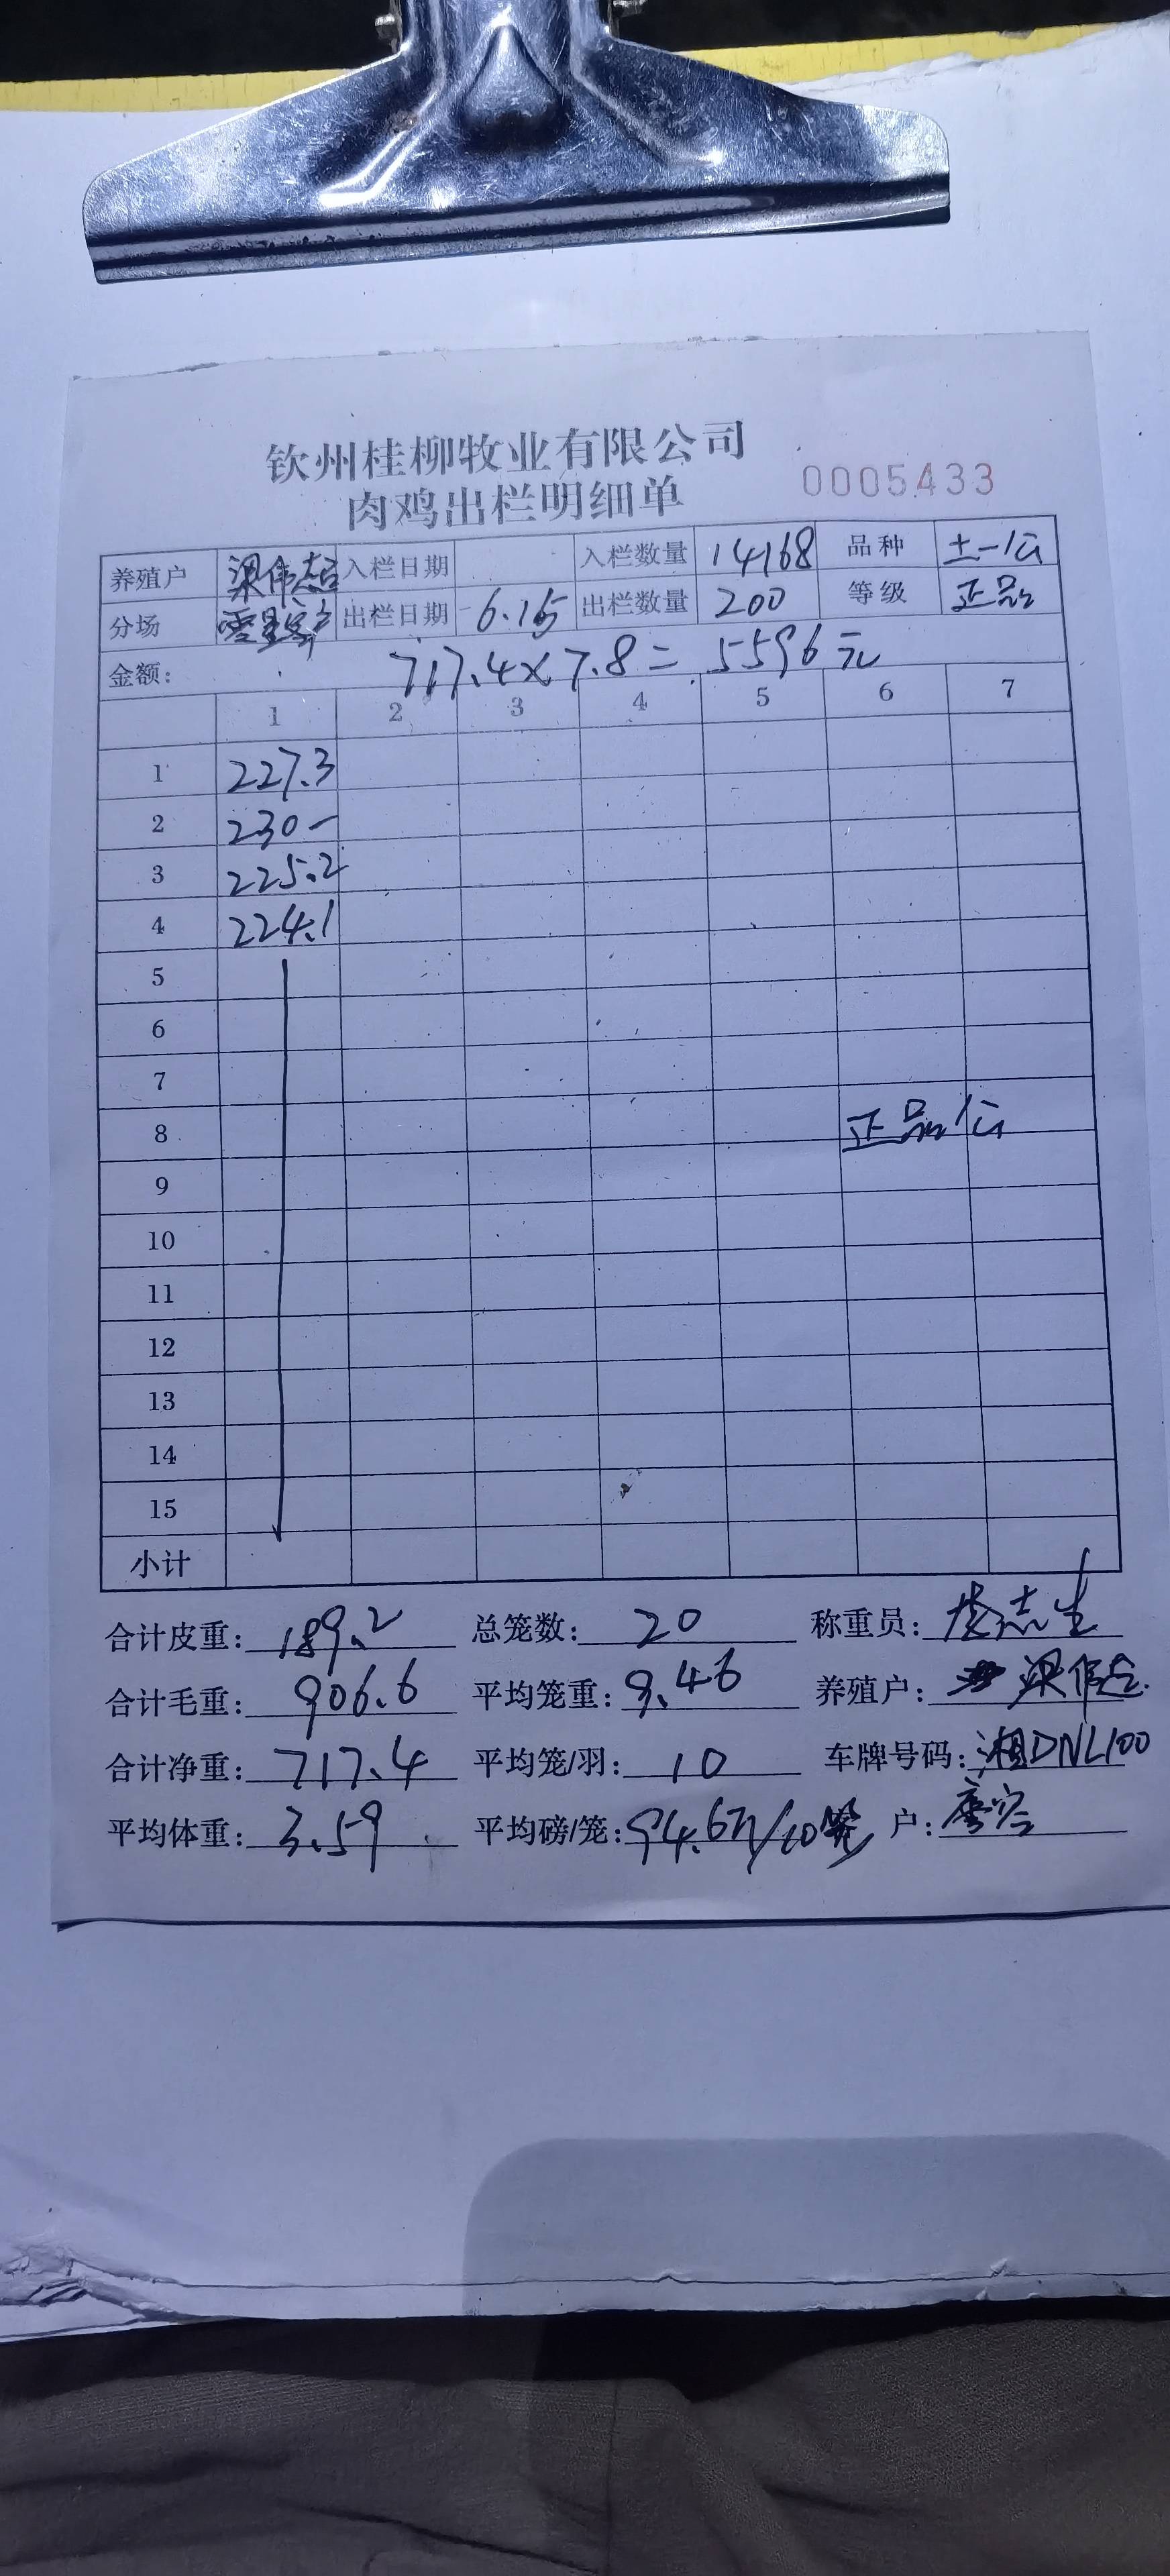 钦州桂柳牧业有限公司
肉鸡出栏明细单 0005433
养殖户 梁伟超 入栏日期 入栏数量 14168 品种 土一公
分场 零星客户 出栏日期 6.15 出栏数量 200 等级 正品
金额: 717.4×7.8=5596元
1 2 3 4 5 6 7
1 227.3
2 230-
3 225.2
4 224.1
5
6
7
8 正品公
9
10
11
12
13
14
15
小计
合计皮重: 189.2 总笼数: 20 称重员: 志生
合计毛重: 906.6 平均笼重: 9.46 养殖户: 梁伟超
合计净重: 717.4 平均笼/羽: 10 车牌号码: 湘DNL100
平均体重: 3.59 平均磅/笼: 94.6斤/10笼 户: